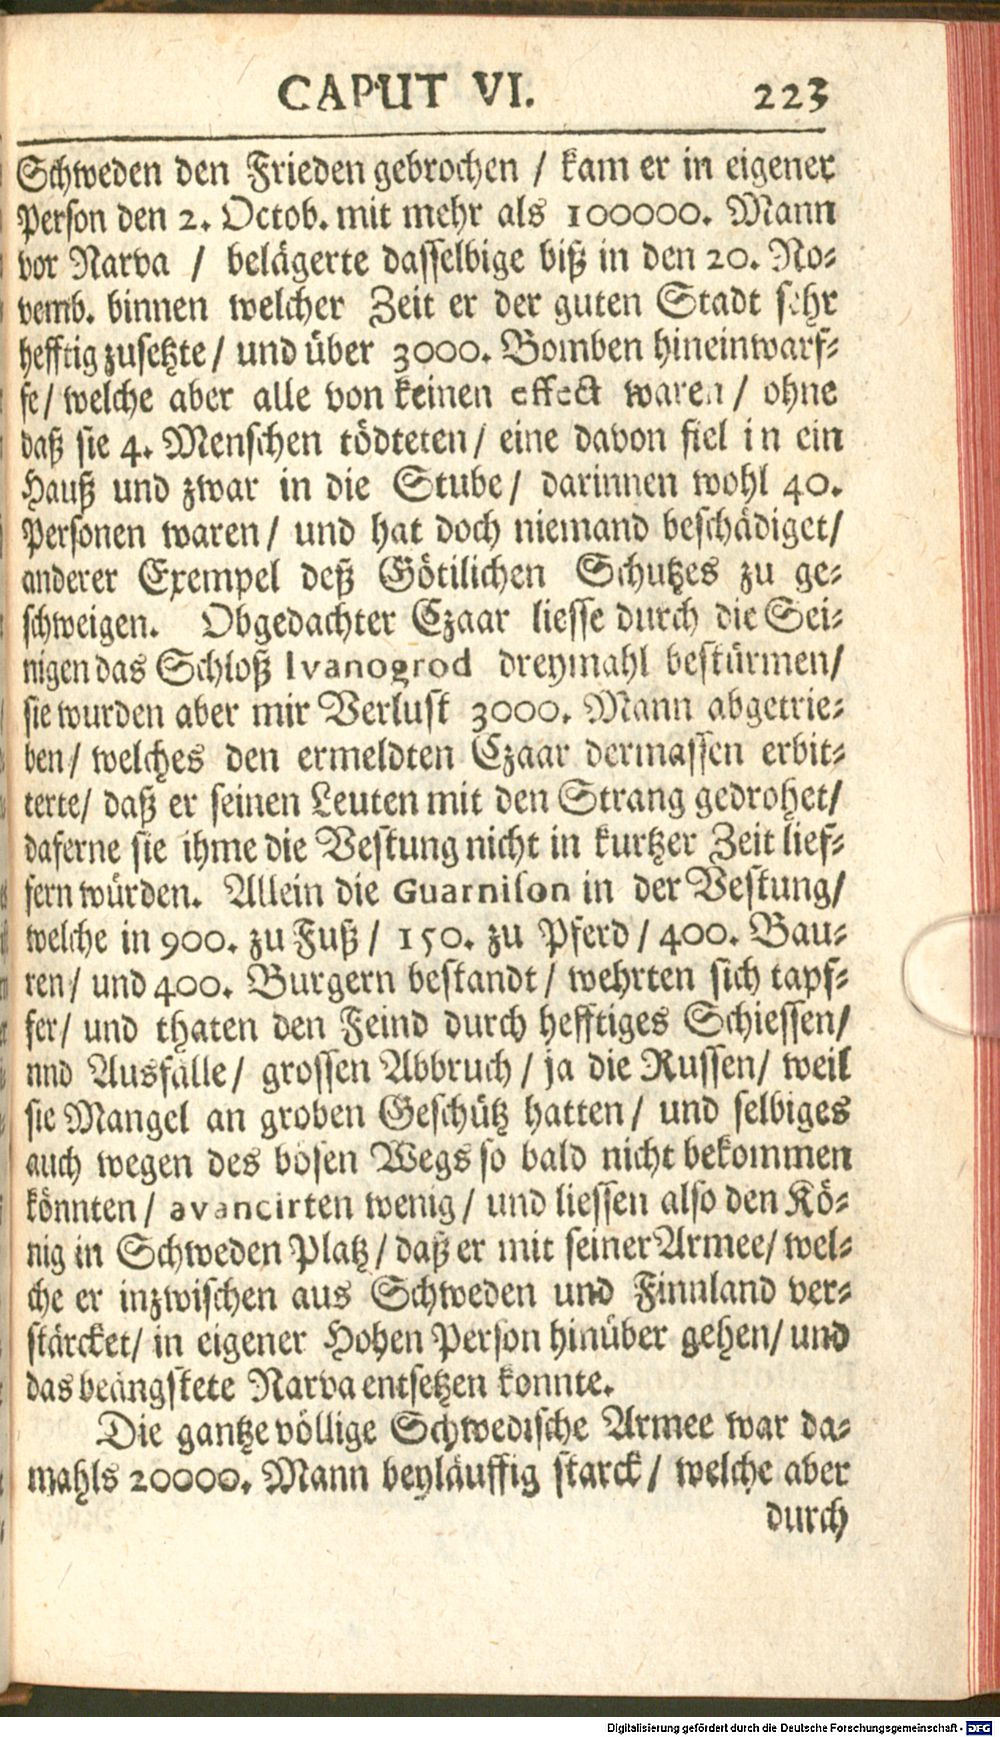 CAPUT VI. 223
Schweden den Frieden gebrochen / kam er in eigener
Person den 2. Octob. mit mehr als 100000. Mann
vor Narva / belägerte dasselbige biß in den 20. No-
vemb. binnen welcher Zeit er der guten Stadt sehr
hefftig zusetzte / und über 3000. Bomben hineinwarf-
fe / welche aber alle von keinen effect waren / ohne
daß sie 4. Menschen tödteten / eine davon fiel in ein
Hauß und zwar in die Stube / darinnen wohl 40.
Personen waren / und hat doch niemand beschädiget /
anderer Exempel deß Götilichen Schutzes zu ge-
schweigen. Obgedachter Czaar liesse durch die Sei-
nigen das Schloß Ivanogrod dreymahl bestürmen /
sie wurden aber mir Verlust 3000. Mann abgetrie-
ben / welches den ermeldten Czaar dermassen erbit-
terte / daß er seinen Leuten mit den Strang gedrohet /
daferne sie ihme die Vestung nicht in kurtzer Zeit lief-
fern würden. Allein die Guarnison in der Vestung /
welche in 900. zu Fuß / 150. zu Pferd / 400. Bau-
ren / und 400. Burgern bestandt / wehrten sich tapf-
fer / und thaten den Feind durch hefftiges Schiessen /
nnd Ausfälle / grossen Abbruch / ja die Russen / weil
sie Mangel an groben Geschütz hatten / und selbiges
auch wegen des bösen Wegs so bald nicht bekommen
könnten / avancirten wenig / und liessen also den Kö-
nig in Schweden Platz / daß er mit seiner Armee / wel-
che er inzwischen aus Schweden und Finnland ver-
stärcket / in eigener Hohen Person hinüber gehen / und
das beängstete Narva entsetzen konnte.
Die gantze völlige Schwedische Armee war da-
mahls 20000. Mann beyläuffig starck / welche aber
durch
Digitalisierung gefördert durch die Deutsche Forschungsgemeinschaft - DFG